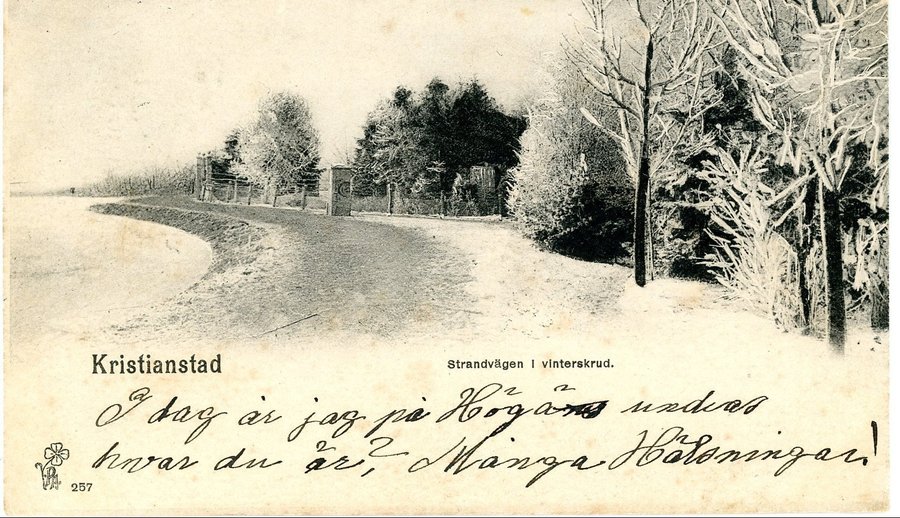 Kristianstad
Strandvägen i vinterskrud.
I dag är jag på Högänäs undras
hvar du är? Många Hälsningar!
257